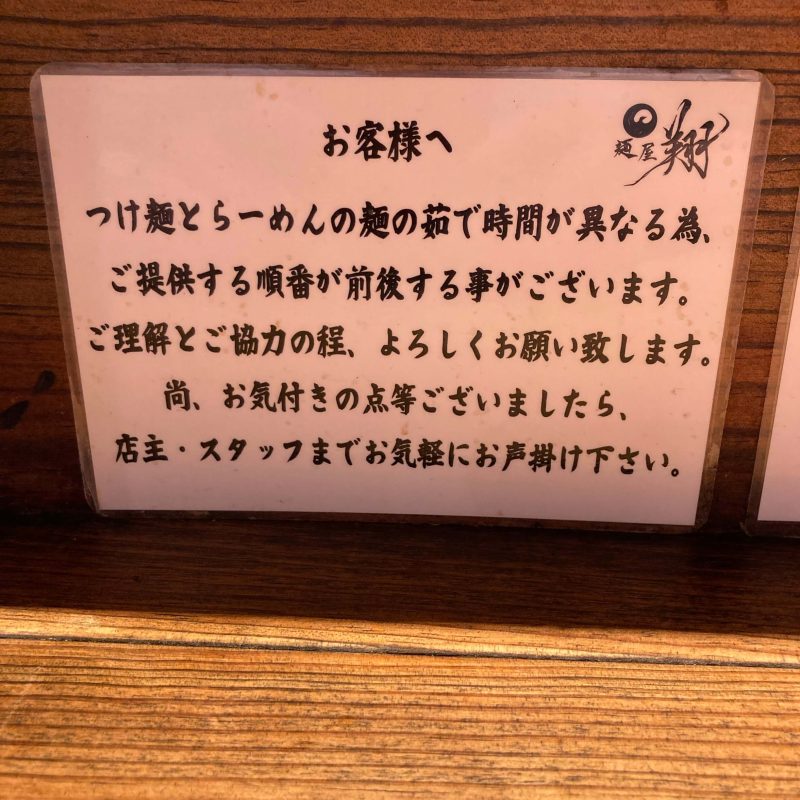 お客様へ
麺屋 翔
つけ麺とらーめんの麺の茹で時間が異なる為、
ご提供する順番が前後する事がございます。
ご理解とご協力の程、よろしくお願い致します。
尚、お気付きの点等ございましたら、
店主・スタッフまでお気軽にお声掛け下さい。